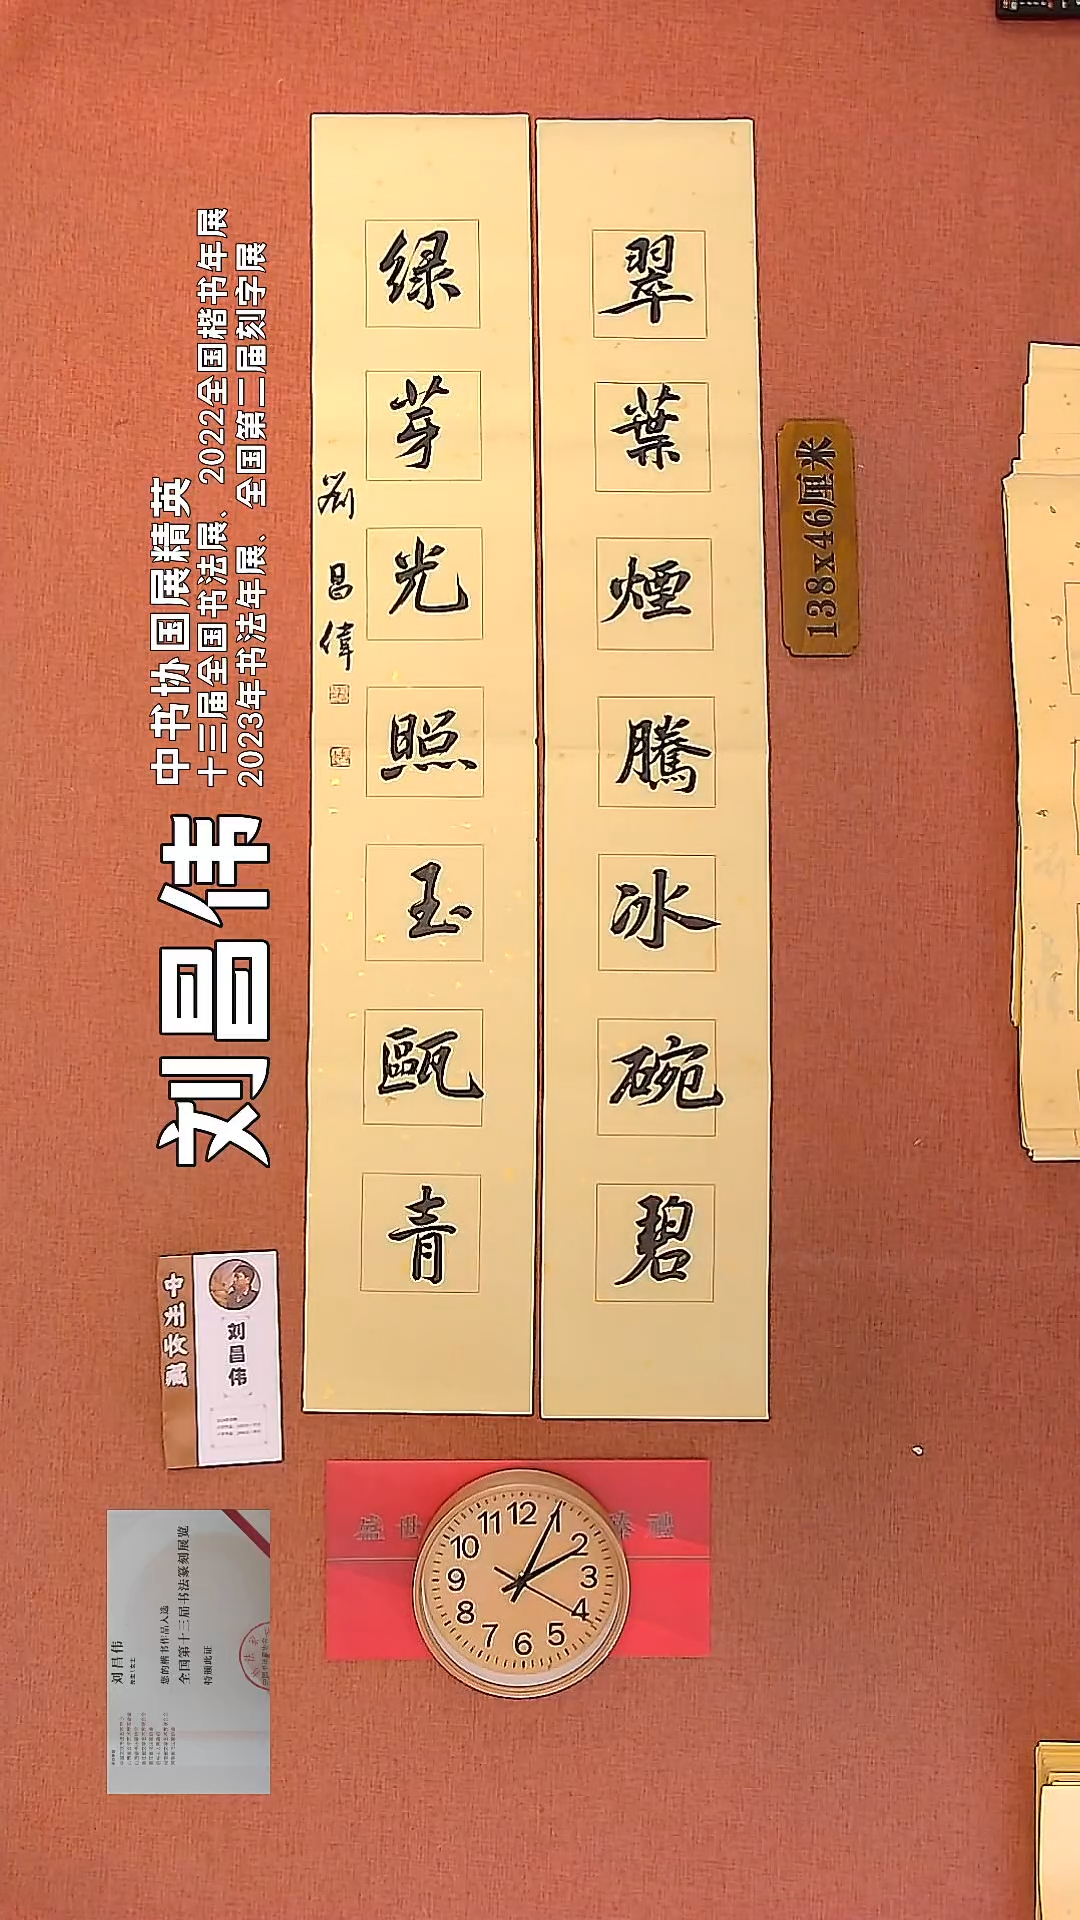 翠葉煙騰冰碗碧
绿芽光照玉甌青
劉昌偉
138x46厘米
中书协国展精英
十三届全国书法展、2022全国楷书年展
2023年书法年展、全国第二届刻字展
刘昌伟
刘昌伟
刘昌伟
您的楷书作品入选
全国第十三届书法篆刻展览
特颁此证
12
1
2
3
4
5
6
7
8
9
10
11